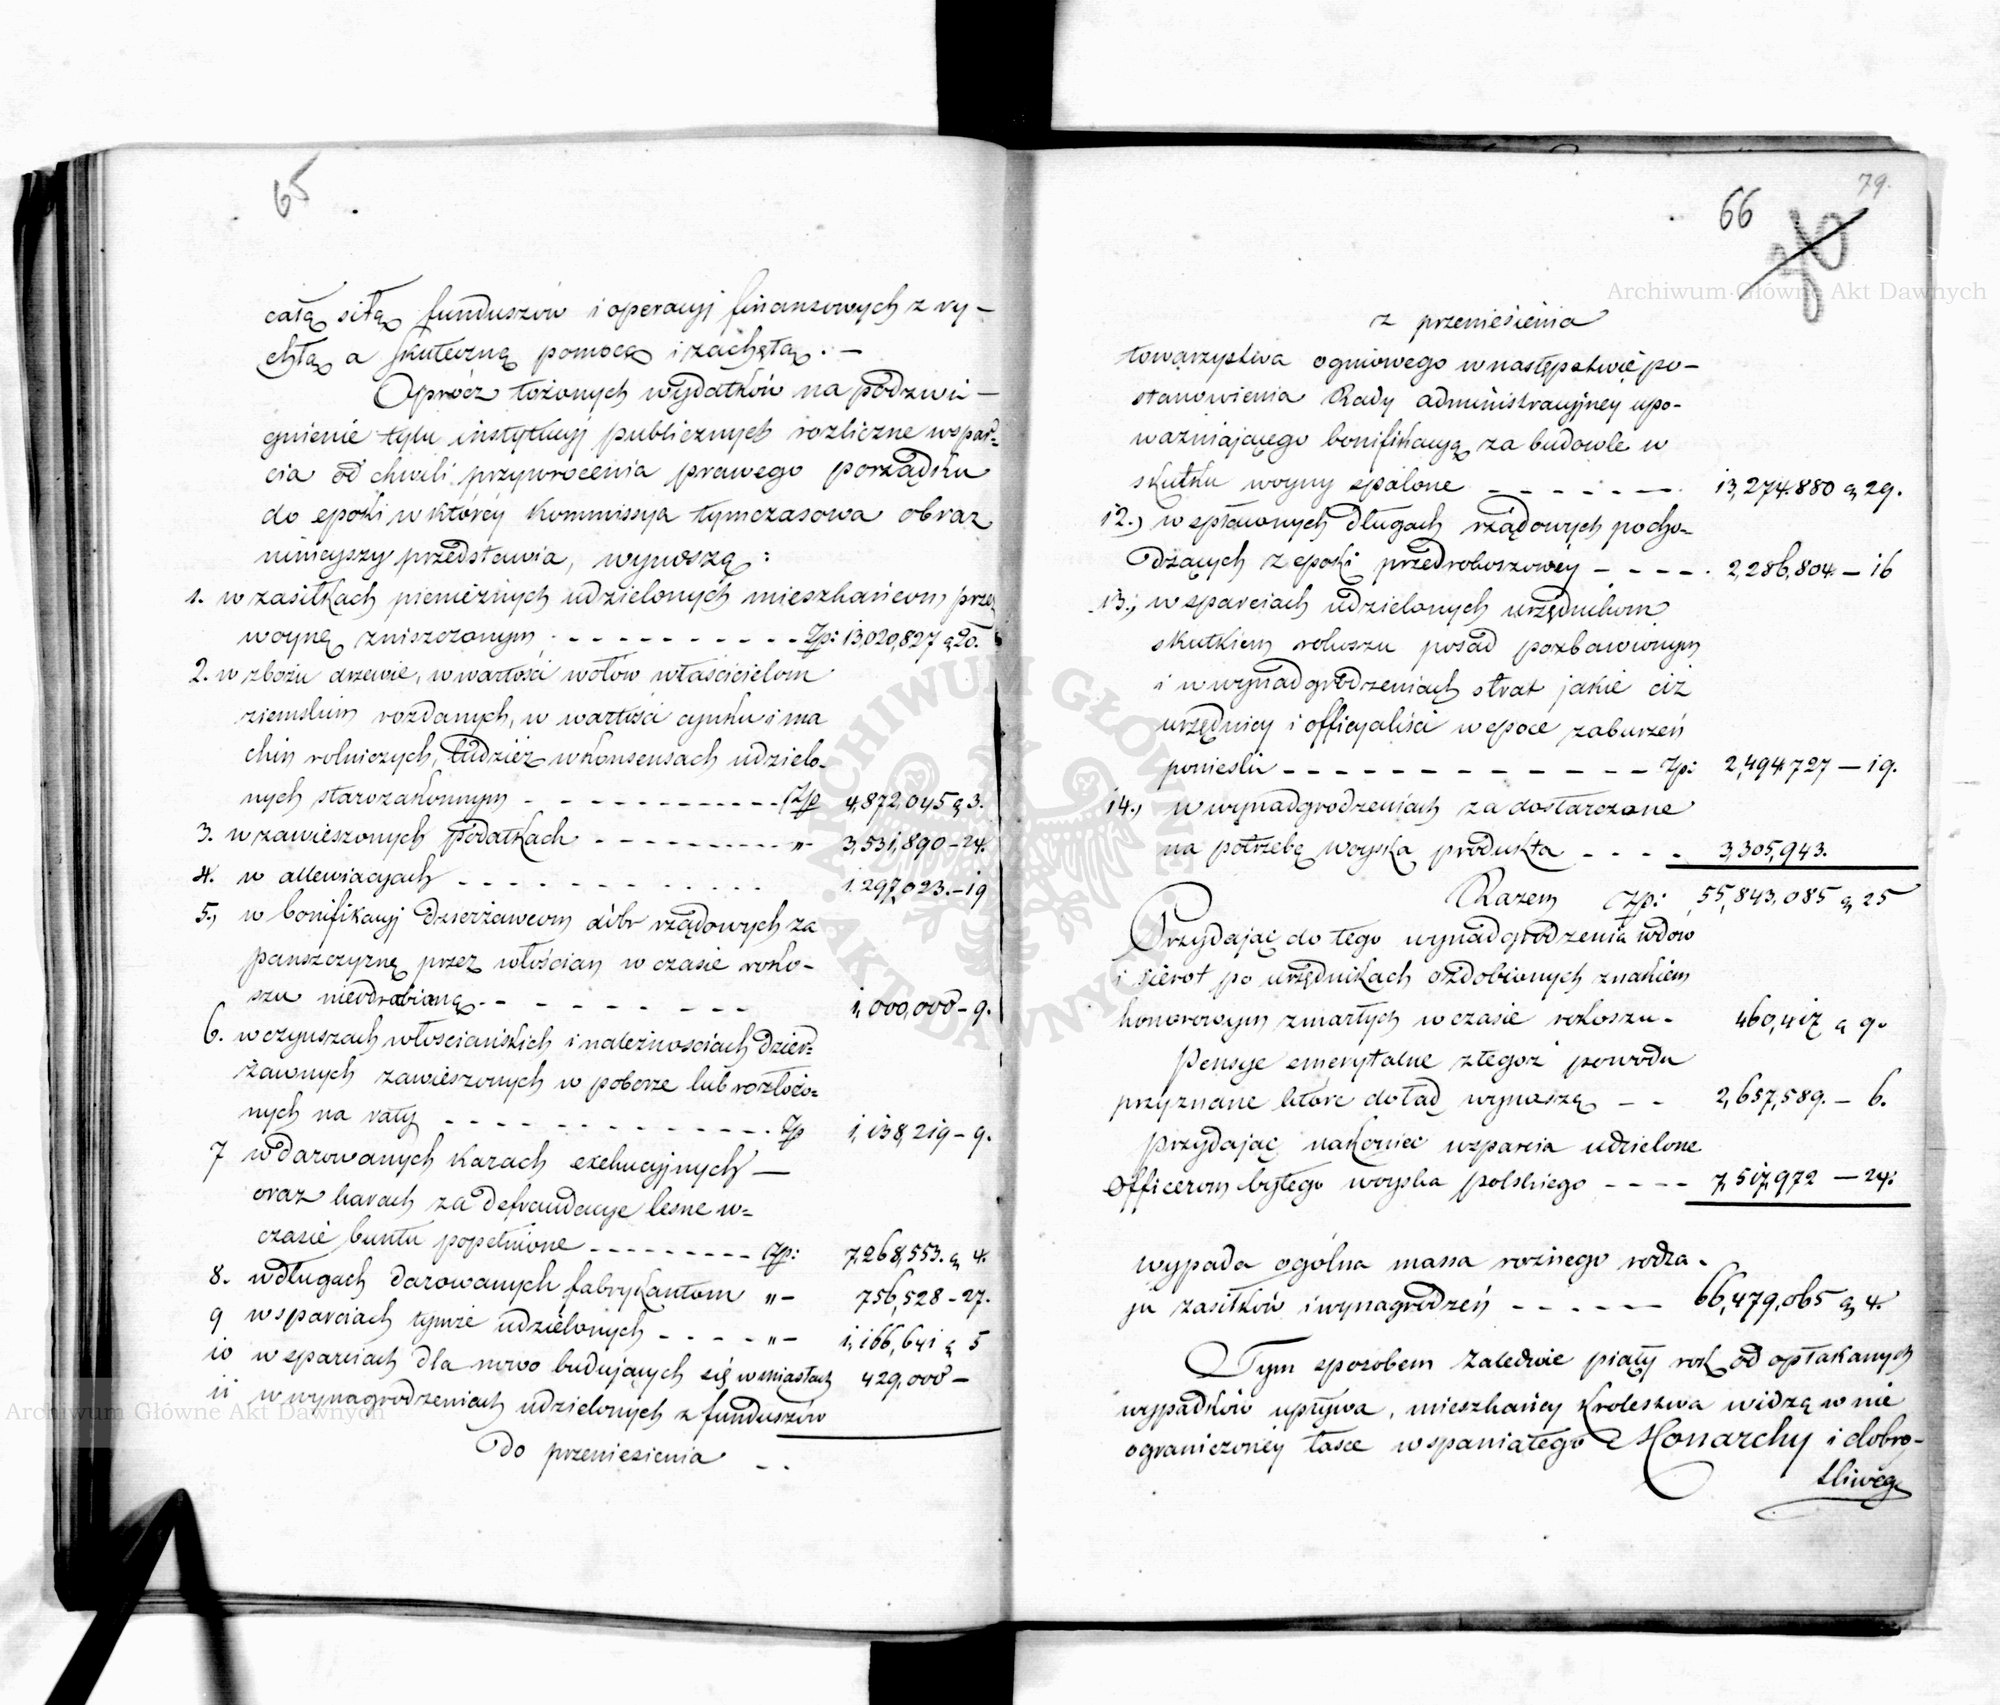 65
całą siłą funduszów i operacyj finansowych z ry-
chłą a skuteczną pomocą i zachętą. —
Oprócz łożonych wydatków na podzwi-
gnienie tylu instytucyj publicznych rozliczne wspar-
cia od chwili przywrocenia prawego porządku
do epoki w którey Kommissya tymczasowa obraz
ninieyszy przedstawia, wynoszą:
1. w zasiłkach pienieżnych udzielonych mieszkańcom przez
woynę zniszczonym - - - - - - - - - Zp: 13,020,827 g 20.
2. w zbożu drzewie, w wartości wołów właścicielom
ziemskim rozdanych, w wartości cynku i ma
chin rolniczych, tudzież w konsensach udzielo-
nych starozakonnym - - - - - - - - - Zp 4,872,045 g 3.
3. w zawieszonych podatkach - - - - - - - - - „ - 3,531,890 - 24.
4. w allewiacyach - - - - - - - - - 1.297,023. - 19
5., w bonifikacyj dzierżawcom dóbr rządowych za
pańszczyznę przez włościan w czasie roko-
szu nieodrobioną - - - - - - - - 1,000,000 - 9.
6. w czynszach włościańskich i należnościach dzier-
żawnych zawieszonych w poborze lub rozłożo-
nych na raty - - - - - - - - - Zp 1,138,219 - 9.
7 w darowanych karach exekucyjnych —
oraz karach za defraudacye leśne w-
czasie buntu popełnione - - - - - - - - - Zp: 7,268,553. g 4.
8. w długach darowanych fabrykantom „ - 756,528 - 27.
9 w sparciach tymże udzielonych - - - - „ - 1,166,641 g 5
10 w sparciach dla nowo budujących się w miastach 429,000 -
11 w wynagrodzeniach udzielonych z funduszów
Do przeniesienia - -
79.
66
z przeniesienia
towarzystwa ogniowego w następstwie po-
stanowienia Rady administracyjney upo-
ważniającego bonifikacyą za budowle w
skutku woyny spalone - - - - - - 13,274.880 g 29.
12., w spłaconych długach rządowych pocho-
dzących z epoki przedrokoszowey - - - - . 2,286,804. - 16
13., w sparciach udzielonych urzędnikom
skutkiem rokoszu posad pozbawionym
i w wynadgrodzeniach strat jakie ciż
urzędnicy i officyaliści w epoce zaburzeń
ponieśli - - - - - - - - - - Zp: 2,494.727 - 19.
14., w wynadgrodzeniach za dostarczane
na potrzebę woyska produkta - - - - 3,305,943.
Razem Zp: 55,843.085 g 25
Przydając do tego wynadgrodzenia wdów
i sierot po urzędnikach ozdobionych znakiem
honorowym zmarłych w czasie rokoszu - 460,417 g 9.
Pensye emerytalne z tegoż powodu
przyznane które dotąd wynoszą - - 2,657,589. - 6.
Przydając nakoniec wzparcia udzielone
Officerom byłego woyska polskiego - - - - 7,517,972 - 24.
wypada ogólna massa rożnego rodza-
ju zasiłków i wynagrodzeń - - - - - 66,479,065 g 4.
Tym sposobem zaledwie piąty rok od opłakanych
wypadków upływa, mieszkańcy Krolestwa widzą w nie
ograniczoney łasce wspaniałego Monarchy i dobro-
tliwég
Archiwum Główne Akt Dawnych
Archiwum Główne Akt Dawnych
ARCHIWUM GŁÓWNE AKT DAWNYCH